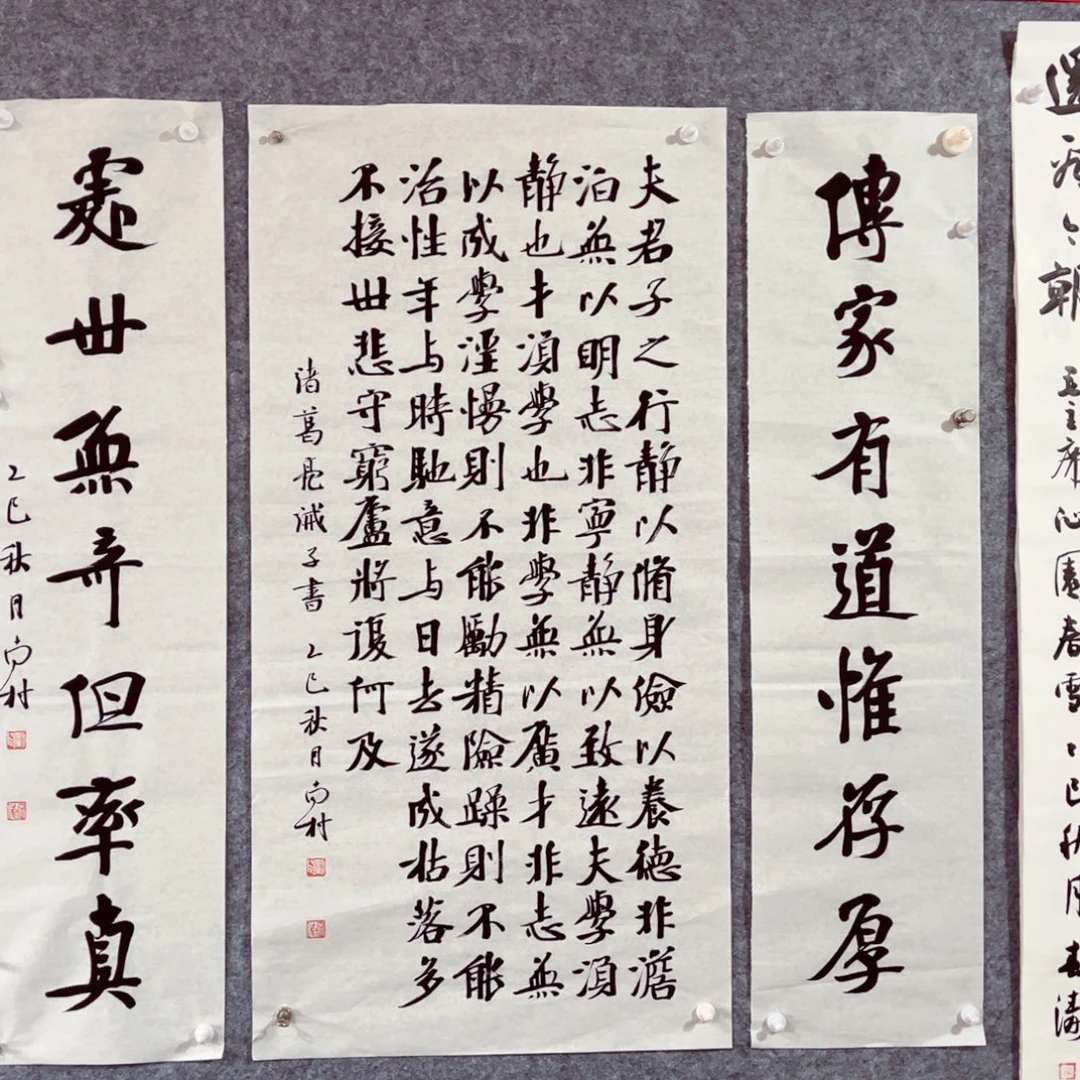 還看今朝
毛主席沁園春雪 乙巳秋月
傳家有道惟存厚
夫君子之行静以脩身儉以養德非澹
泊無以明志非寧静無以致遠夫學須
静也才須學也非學無以廣才非志無
以成學淫慢則不能勵精險躁則不能
治性年与時馳意与日去遂成枯落多
不接世悲守窮廬將復何及
諸葛亮誡子書 乙巳秋月 村
處世無奇但率真
乙巳秋月 村